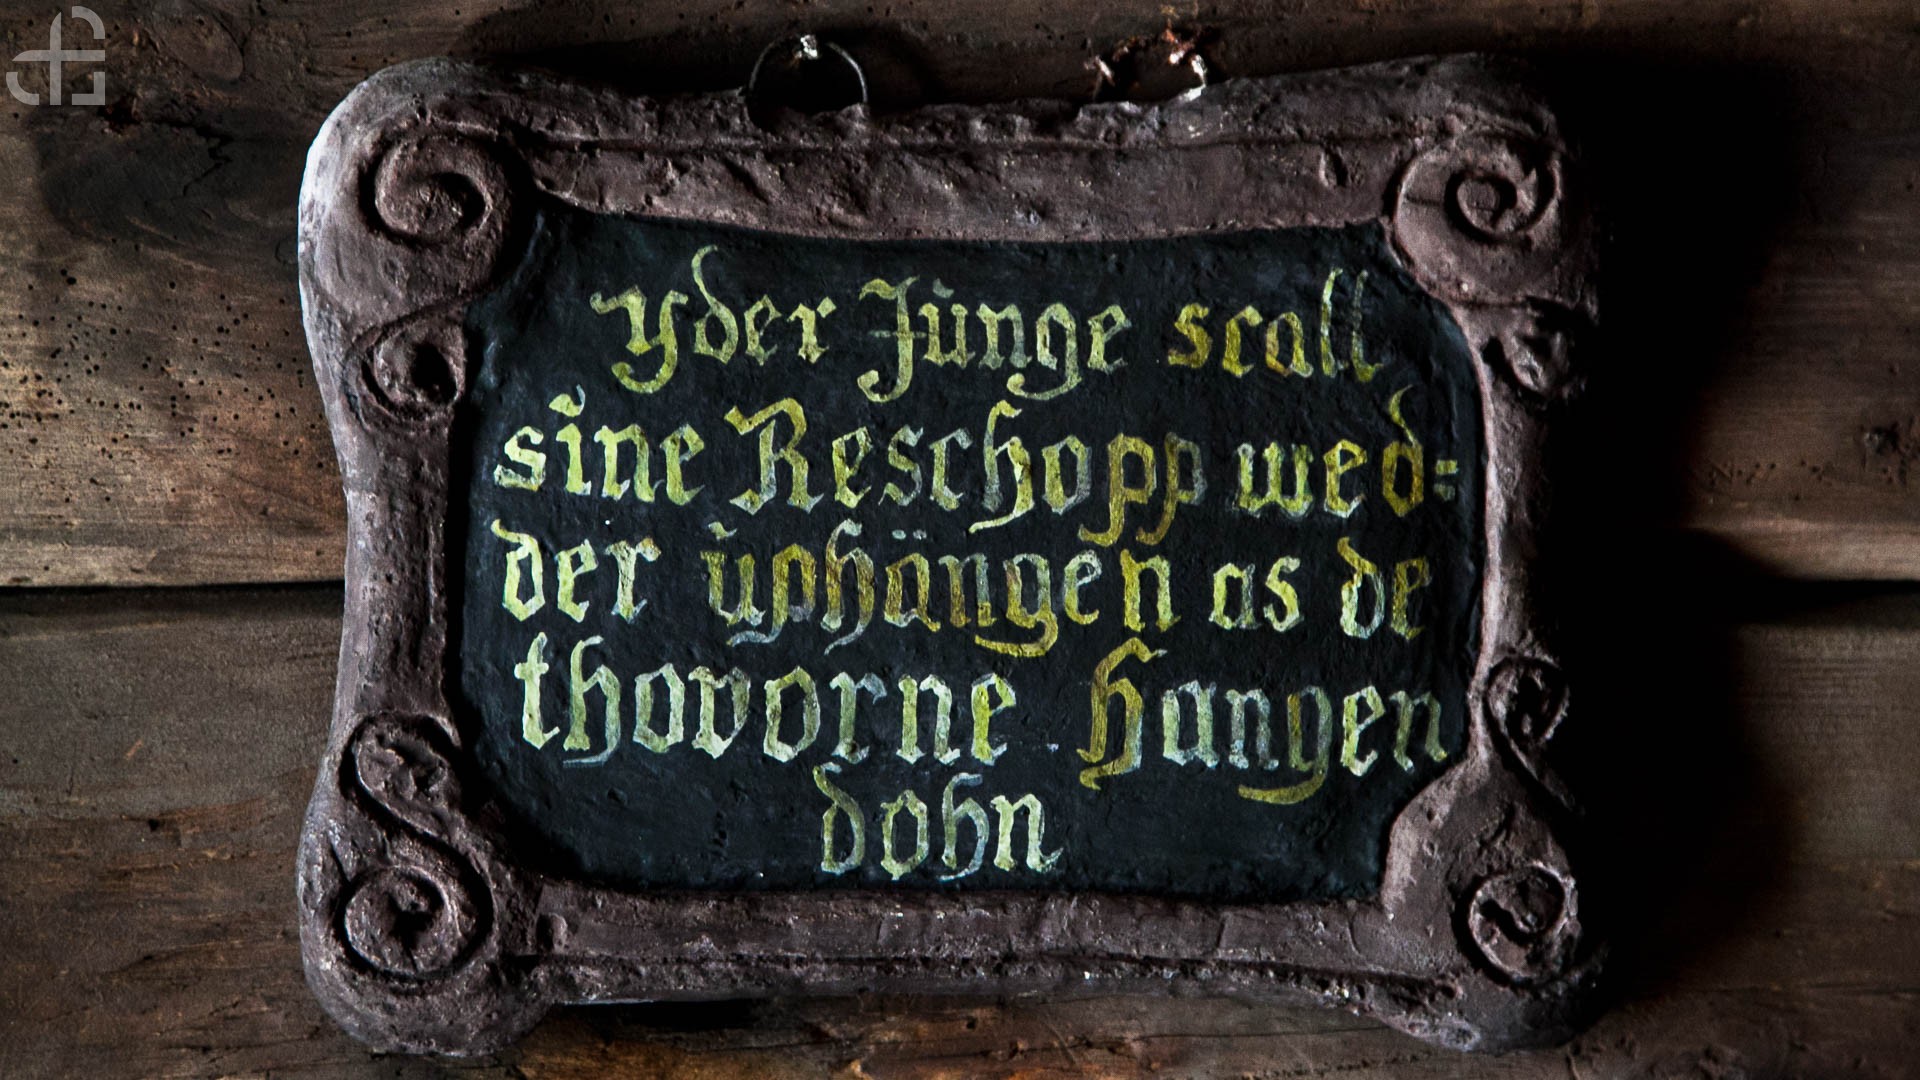 Yder Junge scall
sine Reschopp wed=
der uphängen as de
thovorne hangen
dohn